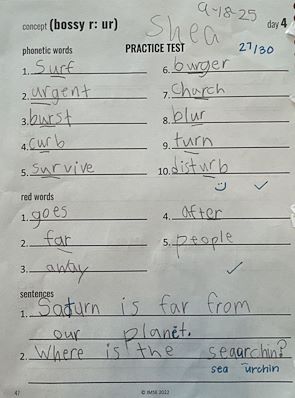 9-18-25
concept (bossy r: ur) Shea day 4
phonetic words PRACTICE TEST 27/30
1. surf
2. urgent
3. burst
4. curb
5. survive
6. burger
7. church
8. blur
9. turn
10. disturb
red words
1. goes
2. far
3. away
4. after
5. people
sentences
1. Saturn is far from
our planet.
2. Where is the seaurchin?
sea urchin
47 © IMSE 2022